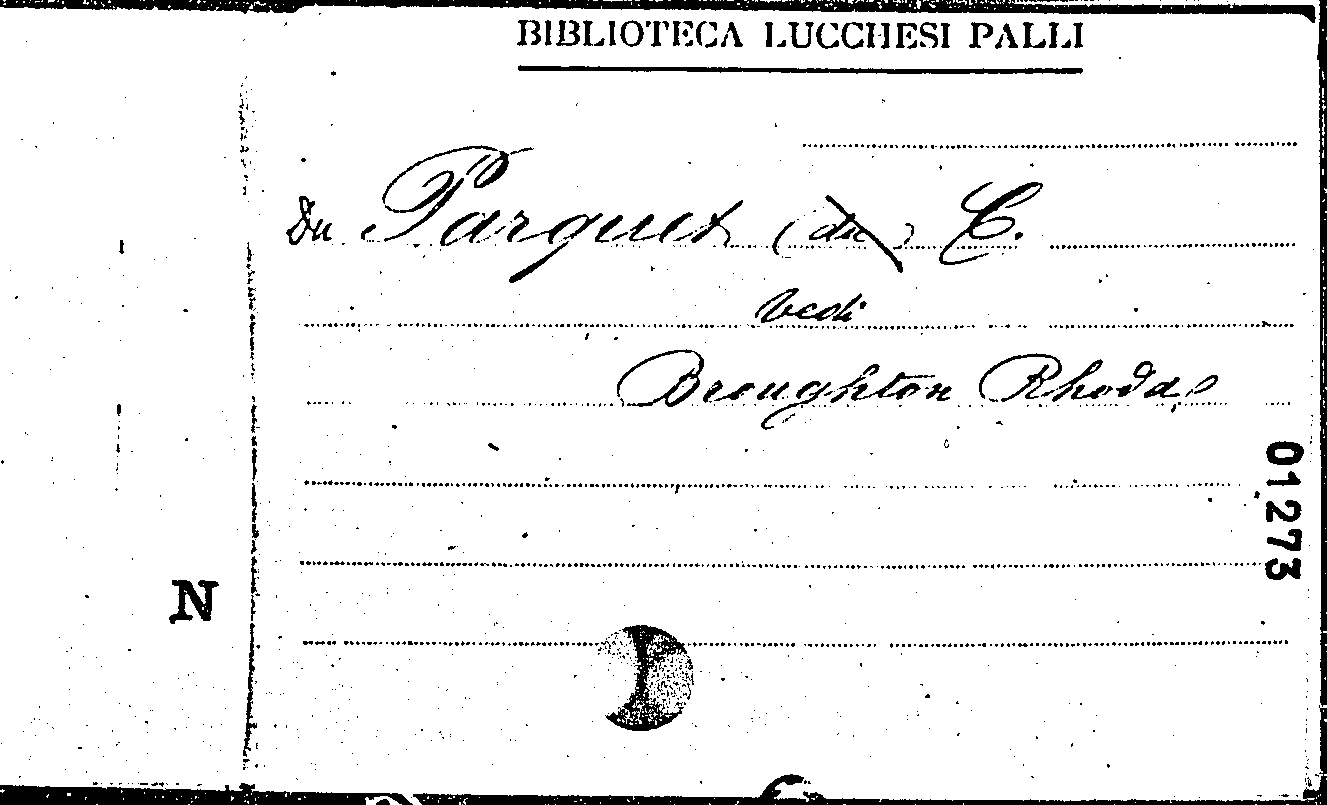 BIBLIOTECA LUCCHESI PALLI
Du Parquet (du) C.
Vedi
Broughton Rhoda
01273
N